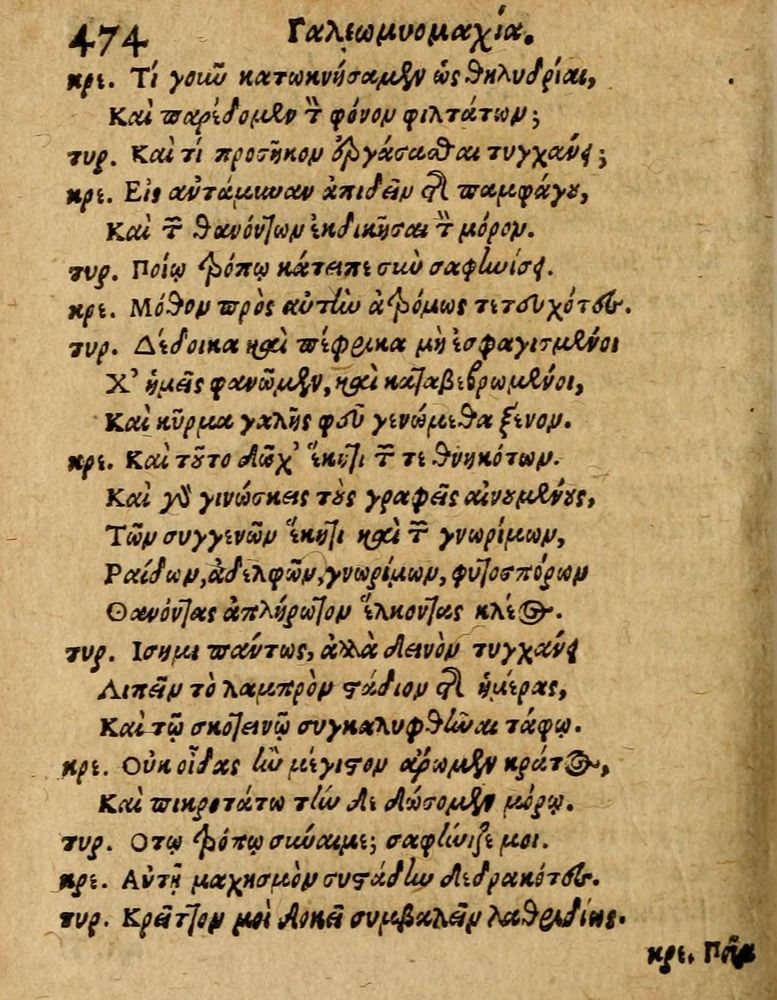 474 Γαλεωμυομαχία.
κρε. Τί γοῦν κατωκνήσαμεν ὡς θηλυδρίαι,
Καὶ παρείδομεν τὸν φόνον φιλτάτων;
τυρ. Καὶ τί προσῆκον ἐργάσασθαι τυγχάνει;
κρε. Εἰς αὐτάμυναν ἀπιδεῖν τῆς παμφάγου,
Καὶ τῶν θανόντων ἐκδικῆσαι τὸν μόρον.
τυρ. Ποίῳ τρόπῳ κάτειπε σὺν σαφηνίσει.
κρε. Μόθον πρὸς αὐτὴν ἀτρόμως τετευχότες.
τυρ. Δέδοικα καὶ πέφρικα μὴ ἐσφαγισμένοι
Χ' ἡμεῖς φανῶμεν, καὶ καταβεβρωμένοι,
Καὶ κῦρμα γαλῆς φεῦ γενώμεθα ξένον.
κρε. Καὶ τοῦτο δῶχ' ἕκητι τῶν τεθνηκότων.
Καὶ γὰρ γινώσκεις τοὺς γραφεῖς αἰνουμένους,
Τῶν συγγενῶν ἕκητι καὶ τῶν γνωρίμων,
Ραίδων, ἀδελφῶν, γνωρίμων, φυτοσπόρων
Θανόντας ἀπλήρωτον ἕλκοντας κλέος.
τυρ. Ισημι πάντως, ἀλλὰ δεινὸν τυγχάνει
Λιπεῖν τὸ λαμπρὸν στάδιον τῆς ἡμέρας,
Καὶ τῷ σκοτεινῷ συγκαλυφθῆναι τάφῳ.
κρε. Οὐκ οἶδας ἢν μέγιστον ἄρωμεν κράτος,
Καὶ πικροτάτω τήν δε δώσομεν μόρῳ.
τυρ. Οτῳ τρόπῳ σύναιμε; σαφήνιζε μοι.
κρε. Αὐτῇ μαχησμὸν συστάδην δεδρακότες.
τυρ. Κρεῖττον μοὶ δοκεῖ συμβαλεῖν λαθριδίως.
κρε.